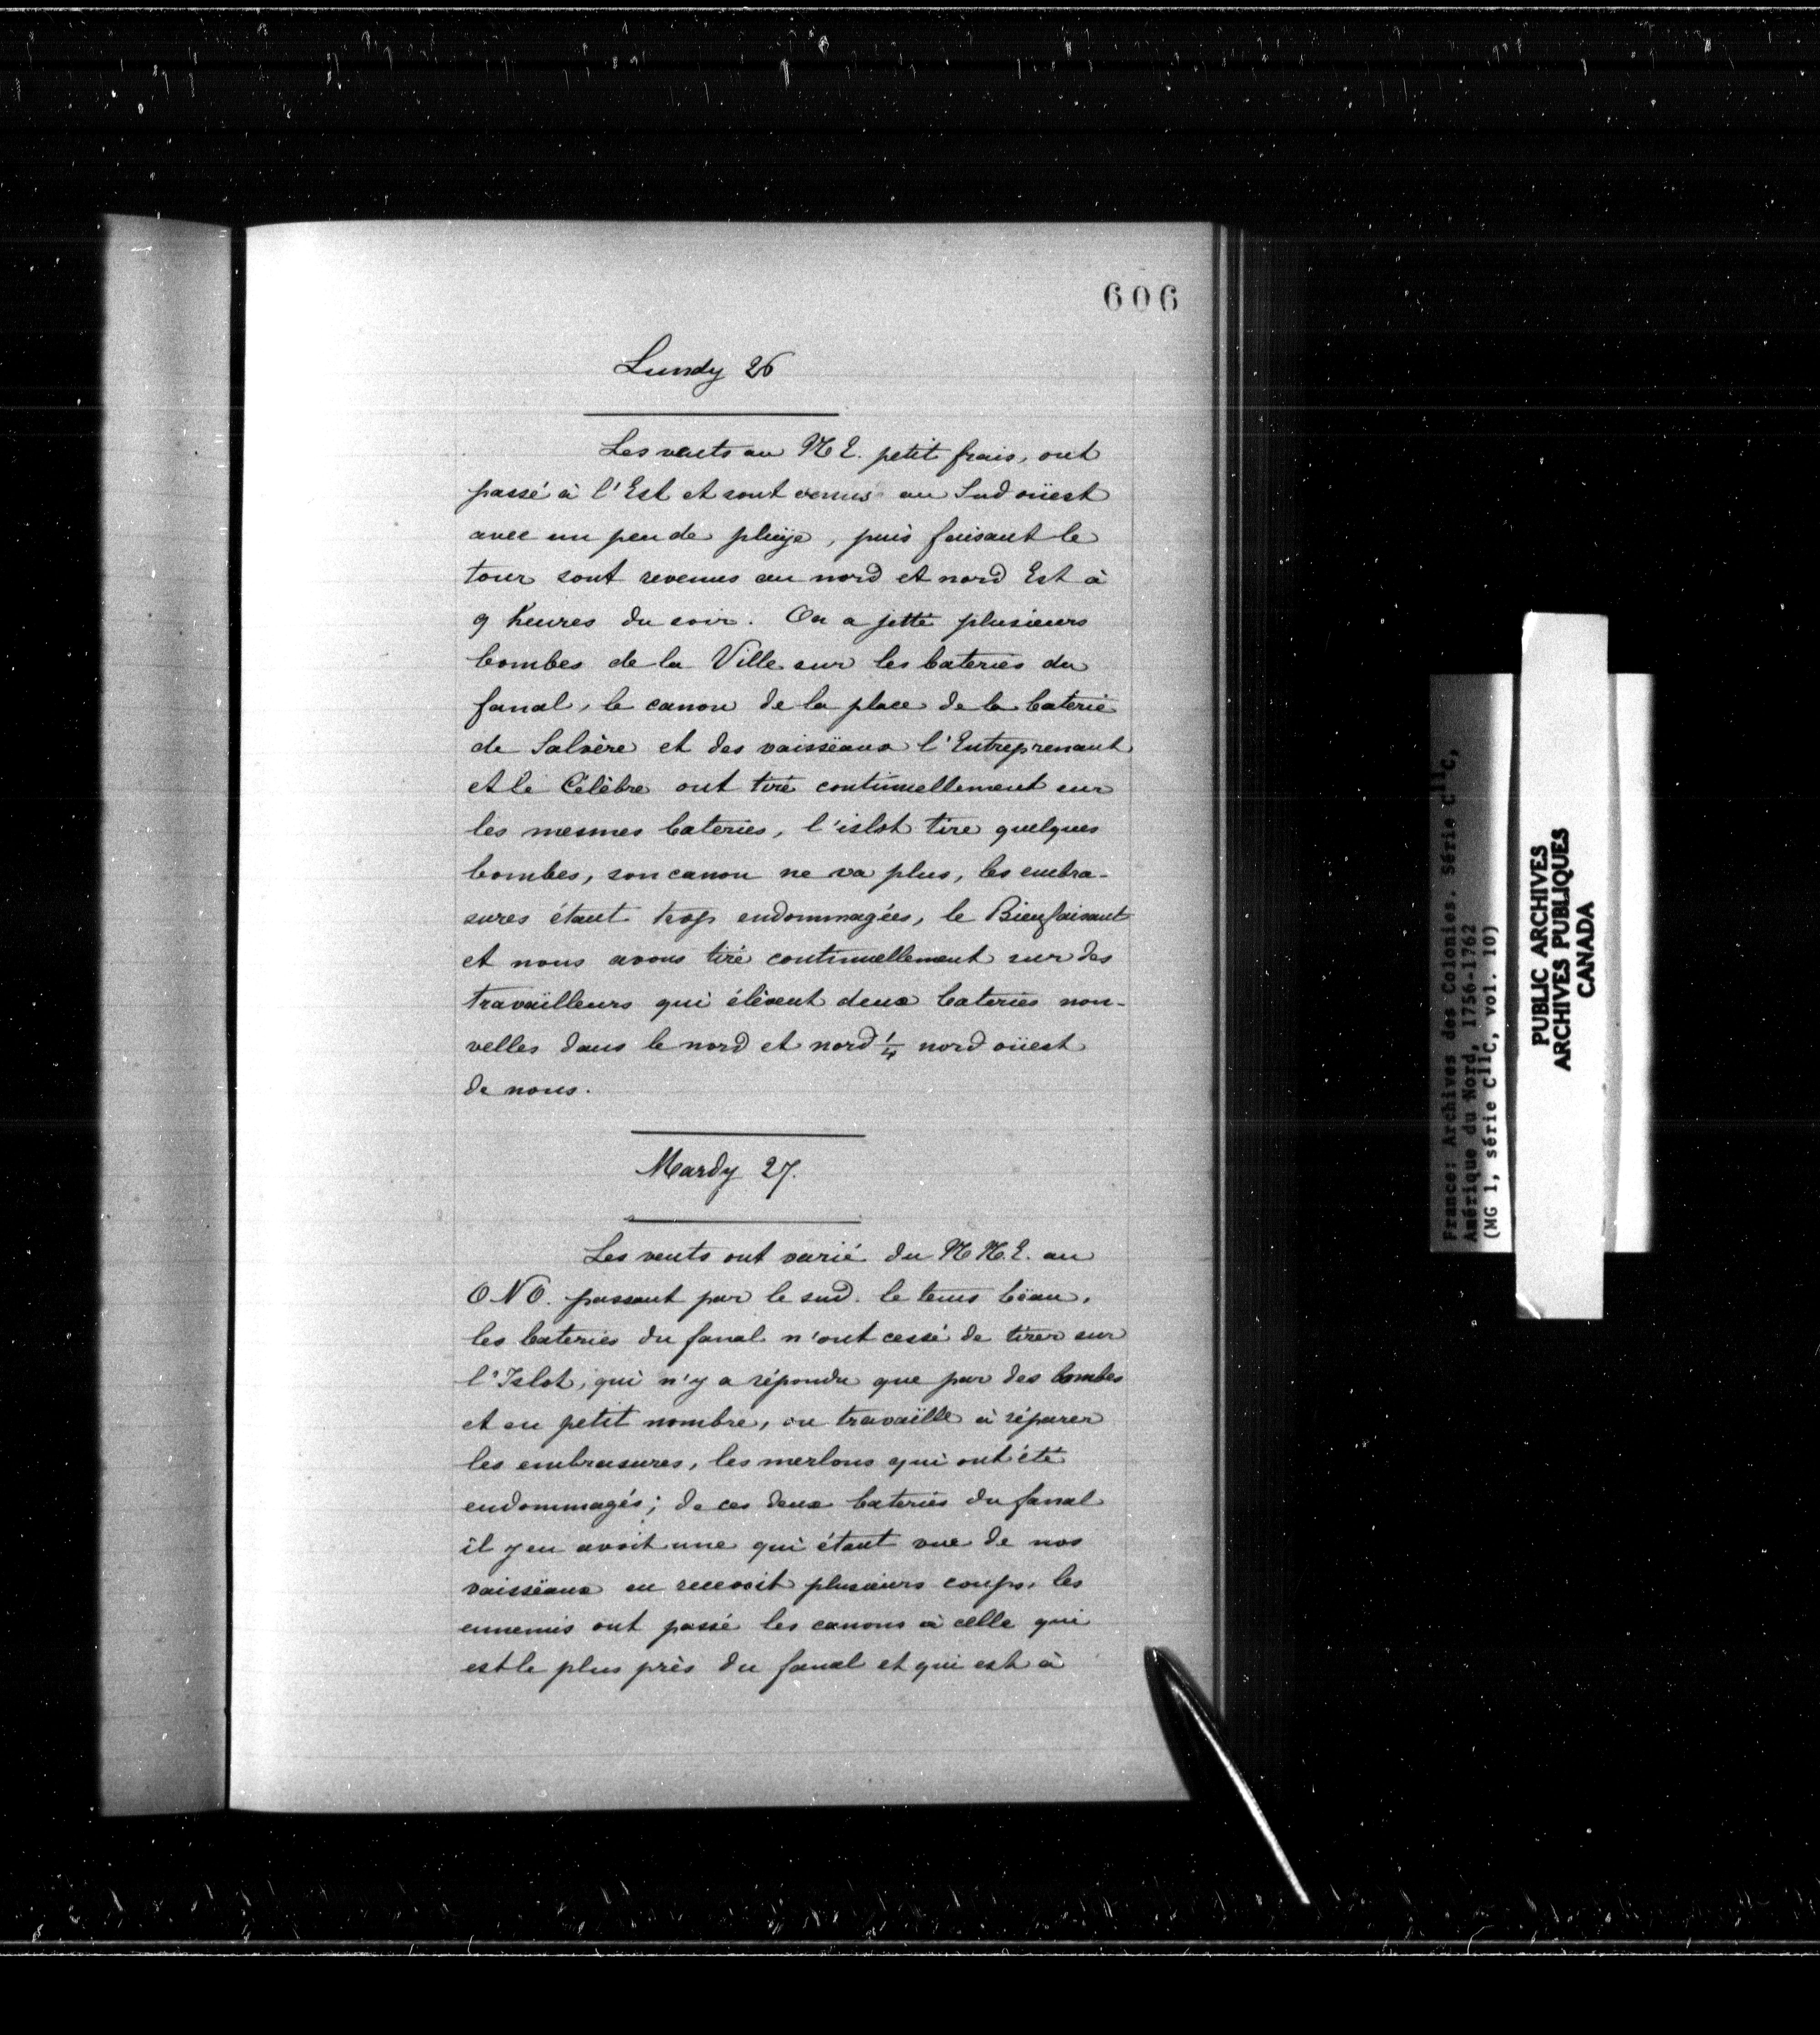 606
Lundy 26
Les vents au N E. petit frais, ont
passé à l'Est et sont venus au Sud oüest
avec un peu de pluÿe, puis faisant le
tour sont revenus au nord et nord Est à
9 heures du soir. On a jetté plusieurs
bombes de la Ville sur les bateries du
fanal, le canon de la place de la baterie
de Salvère et des vaissëaux l'Entreprenant
et le Célèbre ont tiré continuellement sur
les mesmes bateries, l'islot tire quelques
bombes, son canon ne va plus, les embra-
sures étant trop endommagées, le Bienfaisant
et nous avons tiré continuellement sur des
travaïlleurs qui élèvent deux bateries nou-
velles dans le nord et nord 1/4 nord oüest
de nous.
Mardy 27.
Les vents ont varié du N N. E. au
O N O. passant par le sud. le tems bëau,
les bateries du fanal n'ont cessé de tirer sur
l'Islot, qui n'y a répondu que par des bombes
et en petit nombre, on travaïlle à réparer
les embrasures, les merlons qui ont été
endommagés; de ces deux bateries du fanal
il y en avoit une qui étant vue de nos
vaissëaux en recevoit plusieurs coups, les
ennemis ont passé les canons à celle qui
est le plus près du fanal et qui est à
France: Archives des Colonies. Série C11C,
Amérique du Nord, 1756-1762
(MG 1, série C11C, vol. 10)
PUBLIC ARCHIVES
ARCHIVES PUBLIQUES
CANADA